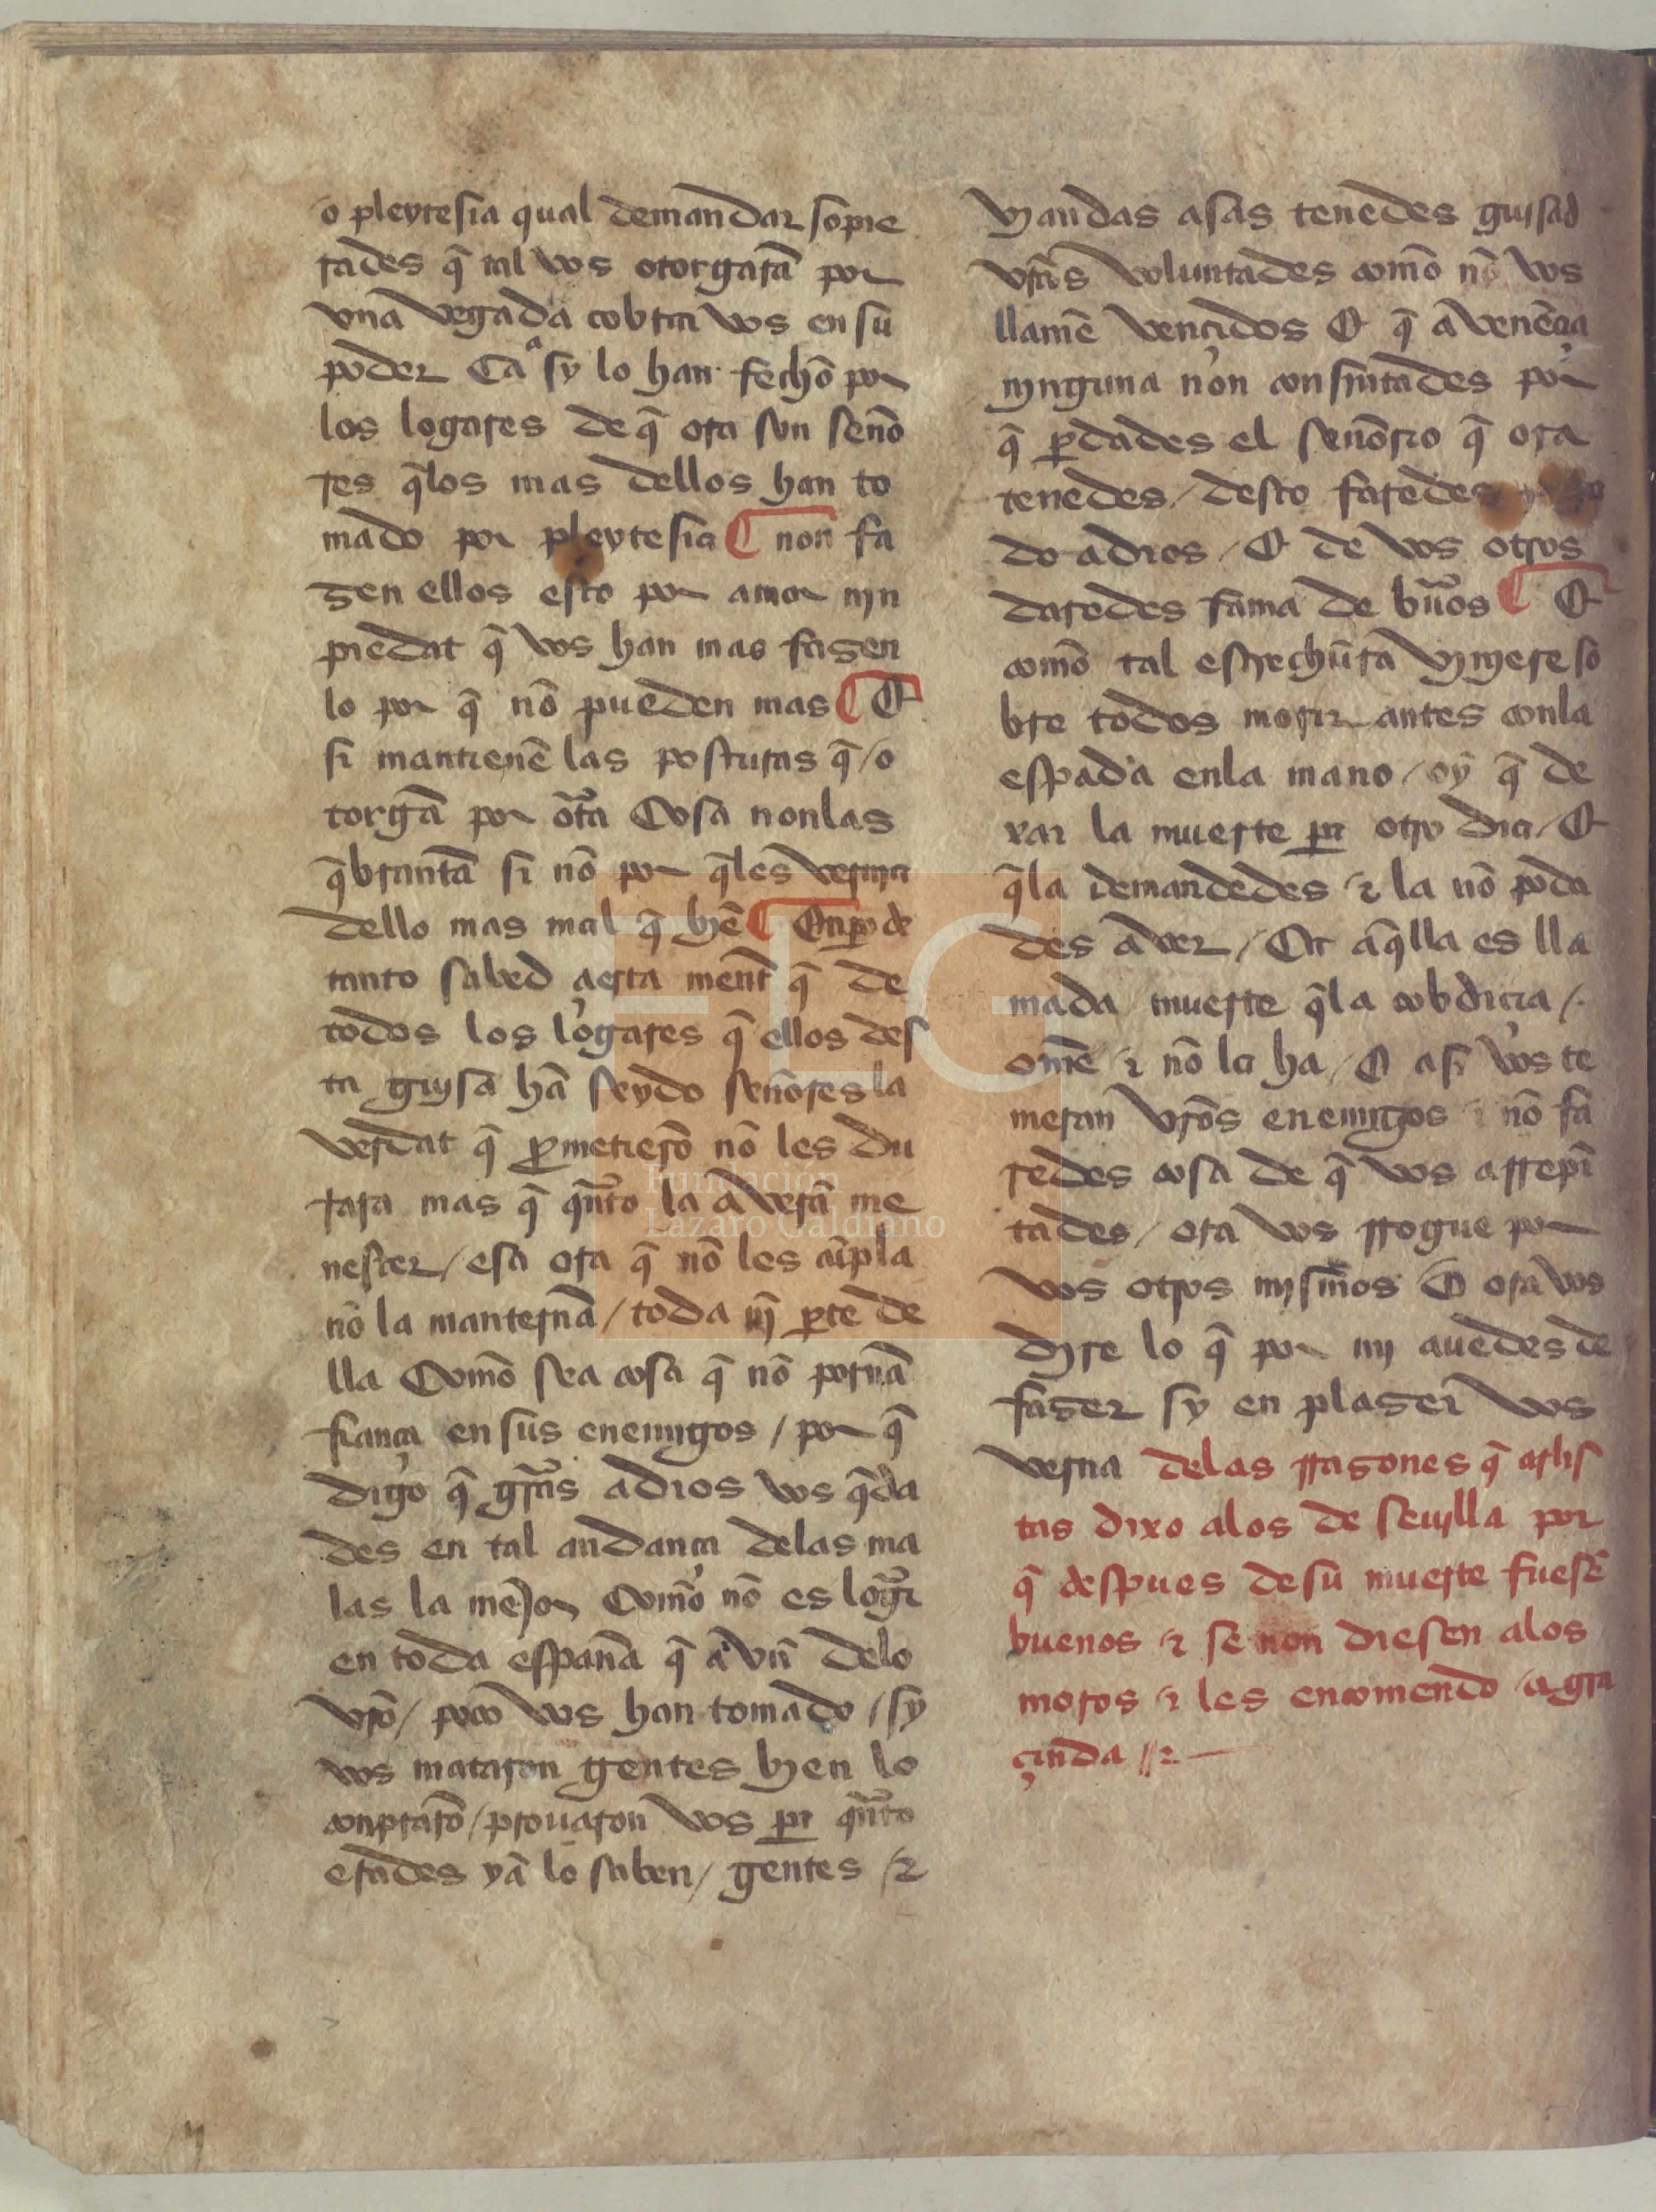 o pleytesia qual demandar sopie
rades q̃ tal vos otorgarã por
vna vegada cobrar vos en su
poder Ca asy lo han fecho por
los logares de q̃ ora son seño
res q̃los mas dellos han to
mado por pleytesia ¶ non fa
zen ellos esto por amor nyn
piedat q̃ vos han mas fazen
lo por q̃ nõ pueden mas ¶ E
si mantienẽ las posturas q̃ / o
torgã por ot̃a Cosa nonlas
q̃brantã si nõ por q̃les verrnia
dello mas mal q̃ byẽ ¶ Enpo de
tanto sabed çierta ment̃ q̃ de
todos los logares q̃ ellos des
ta guysa hã seydo señores la
verdat q̃ ꝓmetierõ nõ les du
rara mas q̃ qñto la averã me
nester / esa ora q̃ nõ les cũpla
nõ la manternã / toda nj̃ ꝑte de
lla Como sea cosa q̃ nõ pornã
fiança en sus enemygos / por q̃
digo q̃ gr̃as a dios vos q̃da
des en tal andança delas ma
las la mejor Como nõ es logar
en toda españa q̃ avñ delo
vr̃o / poco vos han tomado / sy
vos mataron gentes byen lo
conprarõ / prouaron vos pa qñto
erades ya lo saben / gentes / ⁊
vyandas asas tenedes guisad
vr̃as voluntades como nõ vos
llamẽ vençidos E q̃ avenẽçia
nynguna non consintades por
q̃ ꝑdades el señorio q̃ ora
tenedes / desto faredes
do a dios / E de vos otros
daredes fama de buẽos ¶ E
como tal estrechura vynyere so
bre todos morir antes conla
espada enla mano / oy q̃ de
xar la muerte pa otro dia / E
q̃la demandedes ⁊ la nõ poda
des aver / Ca aq̃lla es lla
mada muerte q̃la cobdiçia /
omẽ ⁊ nõ la ha / E asi vos te
meran vr̃os enemygos ⁊ nõ fa
redes cosa de q̃ vos arrepĩ
tades / ora vos rrogue por
vos otros mysmos E ora vos
dyre lo q̃ por my auedes de
fazer sy en plazer vos
verna delas rrazones q̃ arlis
tas dixo alos de seuylla por
q̃ despues de su muerte fuesẽ
buenos ⁊ se non diesen alos
moros ⁊ les encomendo / a gra
çinda // ⁊
FLG
Fundación
Lázaro Galdiano